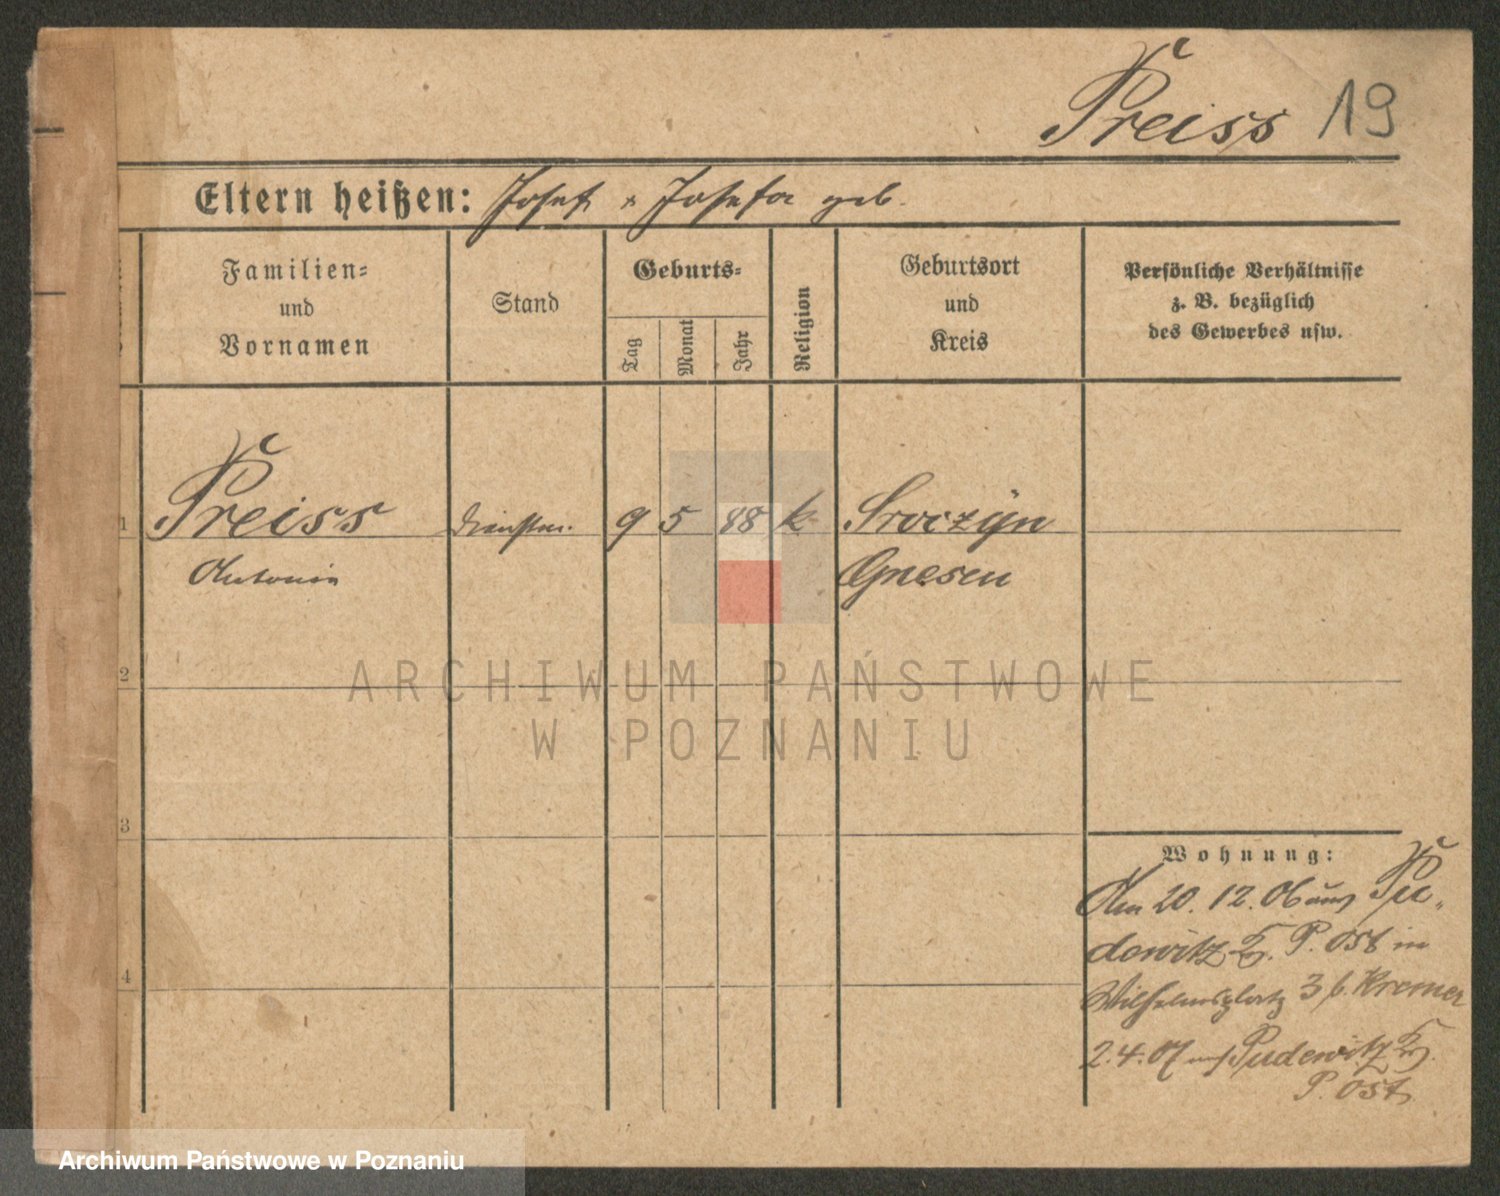 Preiss 19
Eltern heißen: Josef & Josefa geb.
Familien-
und
Vornamen
Stand
Geburts-
Tag
Monat
Jahr
Religion
Geburtsort
und
Kreis
Persönliche Verhältnisse
z. B. bezüglich
des Gewerbes usw.
1 Preiss Dienstm. 9 5 88 k Sroczyn
Antonia Gnesen
2
ARCHIWUM PAŃSTWOWE
W POZNANIU
3
Wohnung:
Am 20. 12. 06 aus Pu-
dewitz Kr. P. Ost in
4
Wilhelmsplatz 3 b. Kremer
2. 4. 07 nach Pudewitz Kr.
P. Ost
Archiwum Państwowe w Poznaniu